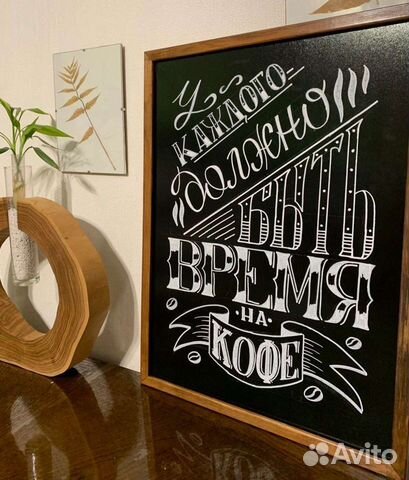 У
КАЖДОГО
ДОЛЖНО
БЫТЬ
ВРЕМЯ
НА
КОФЕ
Avito